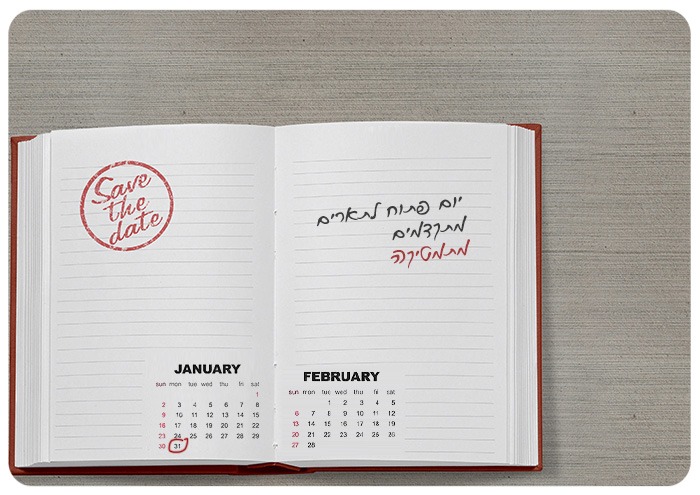 Save
the
date
יום פתוח לתארים
מתקדמים
מתמטיקה
JANUARY
sun mon tue wed thu fri sat
1
2 3 4 5 6 7 8
9 10 11 12 13 14 15
16 17 18 19 20 21 22
23 24 25 26 27 28 29
30 31
FEBRUARY
sun mon tue wed thu fri sat
1 2 3 4 5
6 7 8 9 10 11 12
13 14 15 16 17 18 19
20 21 22 23 24 25 26
27 28